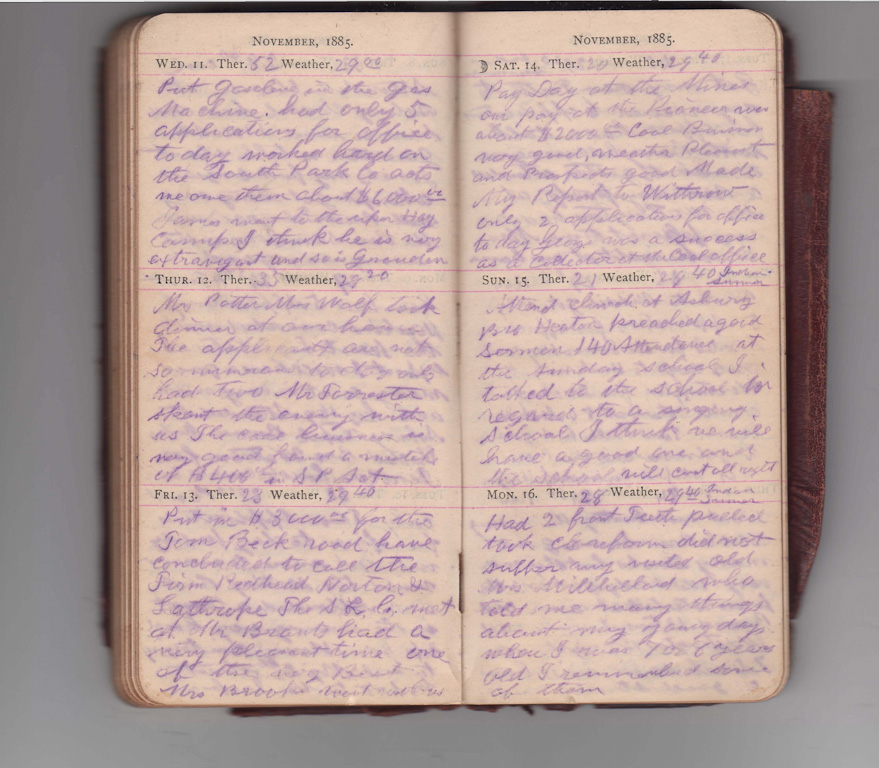 NOVEMBER, 1885.
WED. 11. Ther. 52 Weather, 29
Put gasoline in the gas
Machine. had only 5
applications for office
to day worked hard on
the South Park Co acts
me owe them about $6000
James went to the upper Hay
Camp I think he is very
extravigant and so is
THUR. 12. Ther. 35 Weather, 20
Mr Potter Mrs Wolf took
dinner at our house
The applicants are not
so numerous to day only
had Two Mr Forrester
spent the evening with
us The coal business is
very good found a mistake
of $400 in S P Act
FRI. 13. Ther. 23 Weather, 29 40
Put in $3000 for the
Tom Beck road have
concluded to call the
Firm Redhead Norton &
Lathrope The S L Co met
at Mr Brants had a
very pleasant time one
of the very Best
Mrs Brooks went with us
NOVEMBER, 1885.
SAT. 14. Ther. 20 Weather, 29 40
Pay Day at the Mines
our pay at the Pioneer was
about $2000 Coal Business
very good, weather Pleasant
and Prospects good Made
My Report to Withrow
only 2 applications for office
to day was a success
as a at the Coal office
SUN. 15. Ther. 21 Weather, 29 40 Indian
Summer
Attend church at Asbury
Bro Heaton preached a good
Sermon 140 Attendence at
the Sunday School I
talked to the school in
regard to a singing
School I think we will
have a good one and
the school will cost all right
MON. 16. Ther. 28 Weather, 29 40 Indian
Summer
Had 2 front Teeth pulled
took cloreform did not
suffer any visited old
Mrs who
told me many things
about my young days
when I was 7 or 6 years
old I remembered some
of them